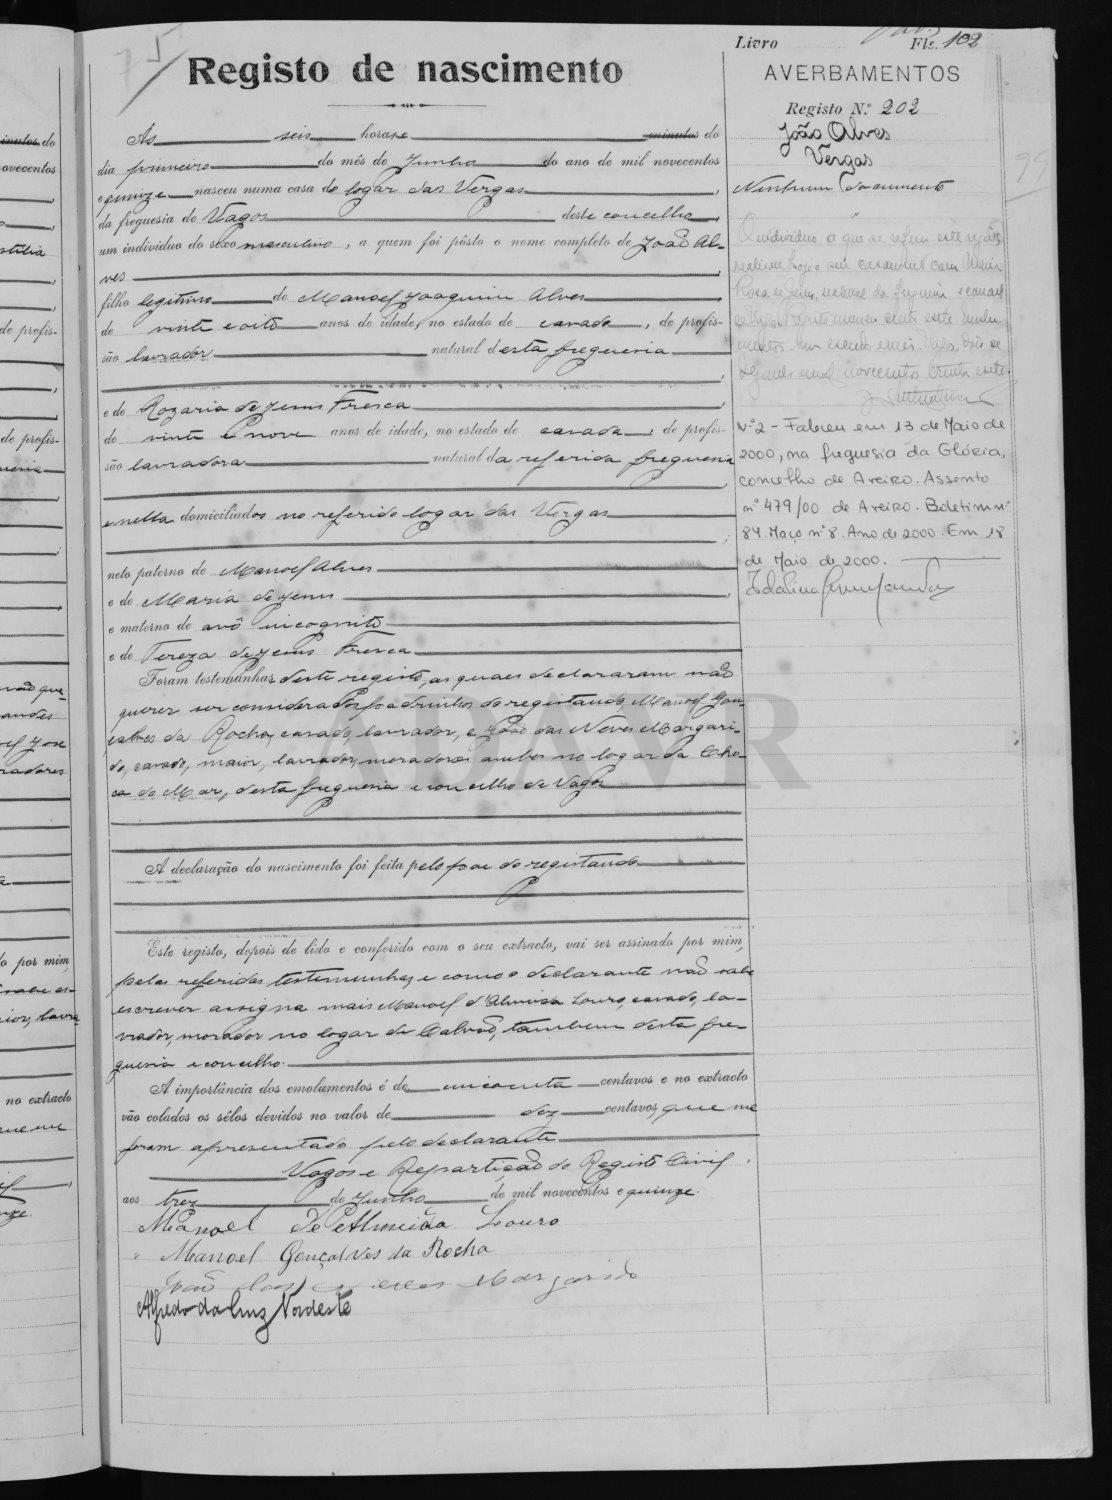 Registo de nascimento
Ás seis horas e minutos do
dia primeiro do mês de Junho do ano de mil novecentos
e quinze nasceu numa casa do logar das Vergas,
da freguesia de Vagos deste concelho,
um individuo do sexo masculino, a quem foi pôsto o nome completo de João Al-
ves
filho legitimo de Manoel Joaquim Alves
de vinte e oito anos de idade, no estado de casado, de profis-
são lavrador natural desta freguesia
e de Rozaria de Jesus Fresca
de vinte e nove anos de idade, no estado de casada, de profis-
são lavradora natural da referida freguesia
e nella domiciliados no referido logar das Vergas
neto paterno de Manoel Alves
e de Maria de Jesus
e materno de avô incognito
e de Tereza de Jesus Fresca
Foram testemunhas deste registo, as quaes declararam não
querer ser considerados padrinhos do registando, Manoel Gon-
çalves da Rocha, casado, lavrador, e João das Neves Margari-
do, casado, maior, lavrador, moradores ambos no logar da Cho-
ca do Mar, desta freguesia e concelho de Vagos
A declaração do nascimento foi feita pelo pae do registando
Este registo, depois de lido e conferido com o seu extracto, vai ser assinado por mim,
pelas referidas testemunhas, e como o declarante não sabe
escrever assigna mais Manoel d'Almeida Louro, casado, la-
vrador, morador no logar de Calvão, tambem desta fre-
guesia e concelho.
A importância dos emolumentos é de cincoenta centavos e no extracto
vão colados os sêlos devidos no valor de dez centavos, que me
foram apresentado pelo declarante
Vagos e Repartição do Registo Civil,
aos trez de Junho de mil novecentos e quinze.
Manoel de Almeida Louro
Manoel Gonçalves da Rocha
João das Neves Margarido
Alfredo da Cruz Nordeste
Livro Fls. 102
AVERBAMENTOS
Registo N.º 202
João Alves
Vergas
Nenhum documento
O individuo a que se refere este registo
realisou hoje seu casamento com Maria
Rosa de Jesus, natural da freguesia e concelho
de Vagos
novecentos trinta e sete
Nº 2 - Faleceu em 13 de Maio de
2000, na freguesia da Glória,
concelho de Aveiro. Assento
nº 479/00 de Aveiro. Boletim nº
84. Maço nº 8. Ano de 2000. Em 18
de Maio de 2000.
ADAVR
99